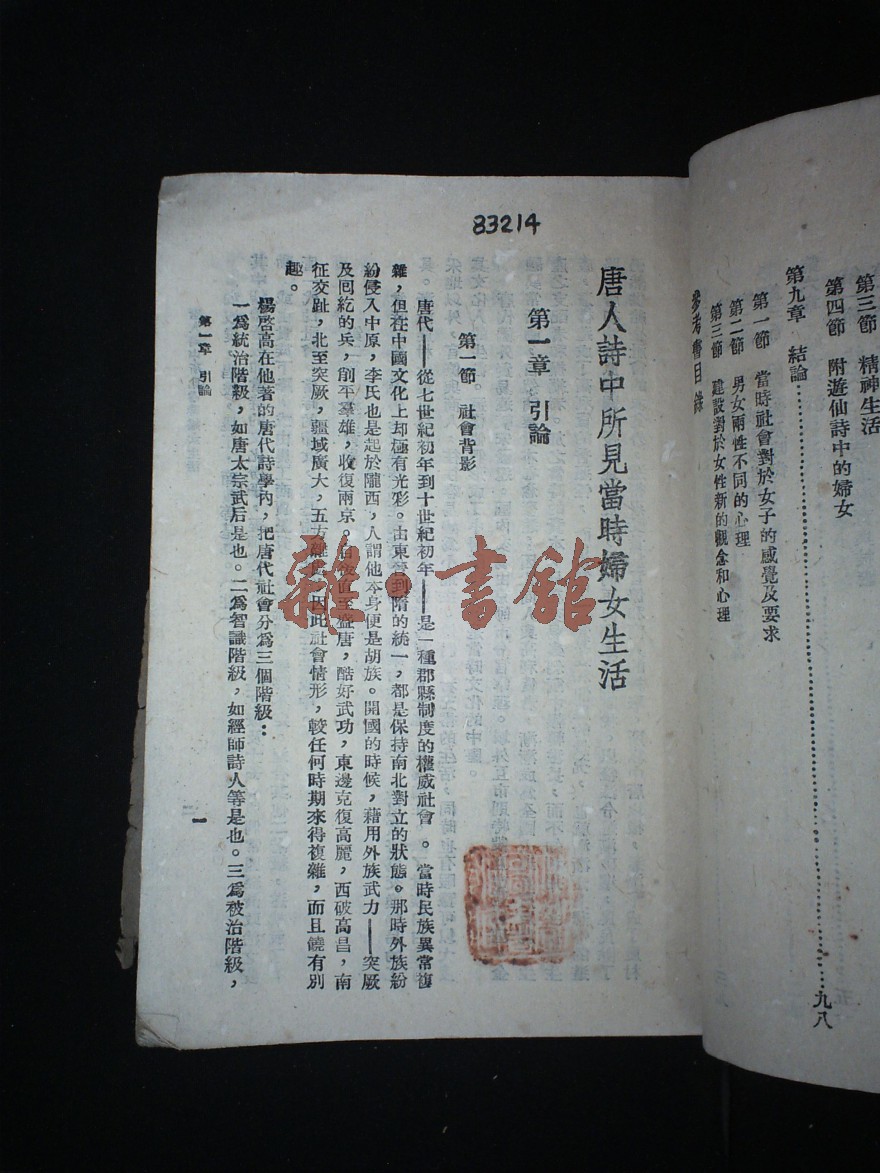 第三節　精神生活
第四節　附遊仙詩中的婦女
第九章　結論……九八
第一節　當時社會對於女子的感覺及要求
第二節　男女兩性不同的心理
第三節　建設對於女性新的觀念和心理
參考書目錄
83214
唐人詩中所見當時婦女生活
第一章　引論
第一節　社會背影
唐代——從七世紀初年到十世紀初年——是一種郡縣制度的權威社會。當時民族異常複
雜，但在中國文化上却極有光彩。由東晉到隋的統一，都是保持南北對立的狀態。那時外族紛
紛侵入中原，李氏也是起於隴西，人謂他本身便是胡族。開國的時候，藉用外族武力——突厥
及回紇的兵，削平羣雄，收復兩京。直至盛唐，酷好武功，東邊克復高麗，西破高昌，南
征交趾，北至突厥，疆域廣大，五方雜，因此社會情形，較任何時期來得複雜，而且饒有別
趣。
楊啓高在他著的唐代詩學內，把唐代社會分爲三個階級：
一爲統治階級，如唐太宗武后是也。二爲智識階級，如經師詩人等是也。三爲被治階級，
第一章　引論
一
雜·書館